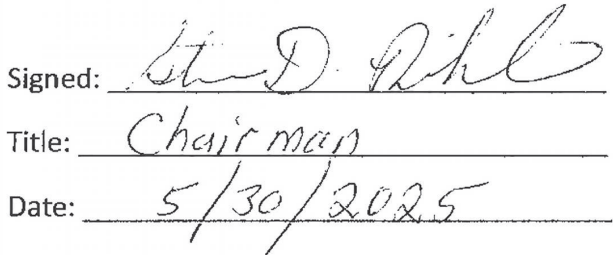 Signed: D.
Title: Chairman
Date: 5/30/2025